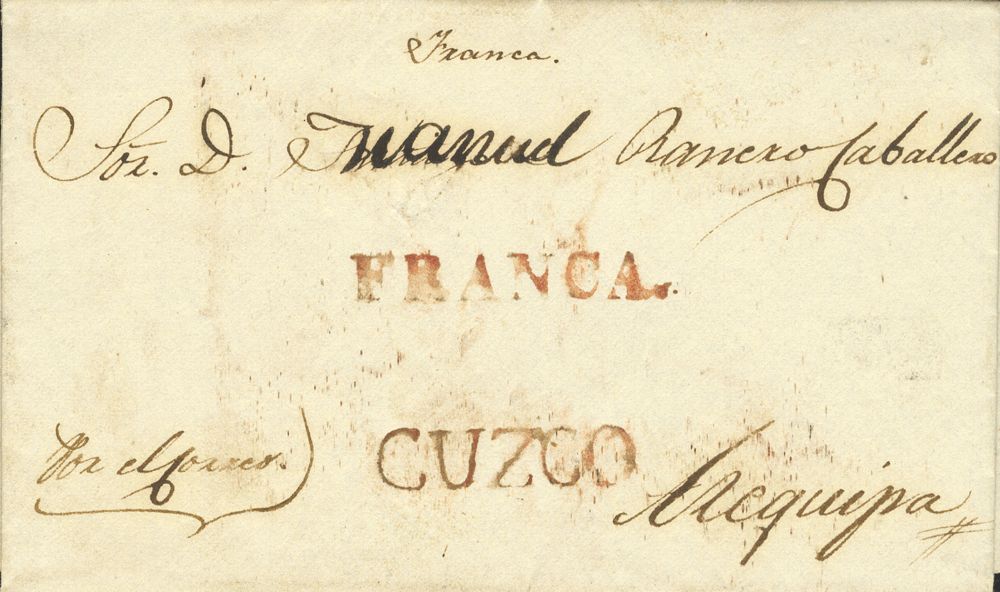 Franca.
Sor. D. Manuel Ranero Caballero
FRANCA.
Por el Correo.
CUZCO
Arequipa